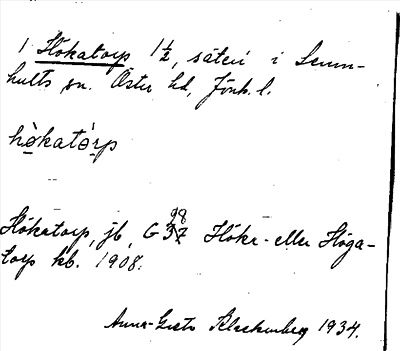 1 Hökatorp 1½, säteri i Lemn-
hults sn. Öster hd, Jönk. l.
hökatorp
Hökatorp, jb, G 37 98 Höke- eller Höga-
torp kb. 1908.
Anna-Greta Blackenberg 1934.